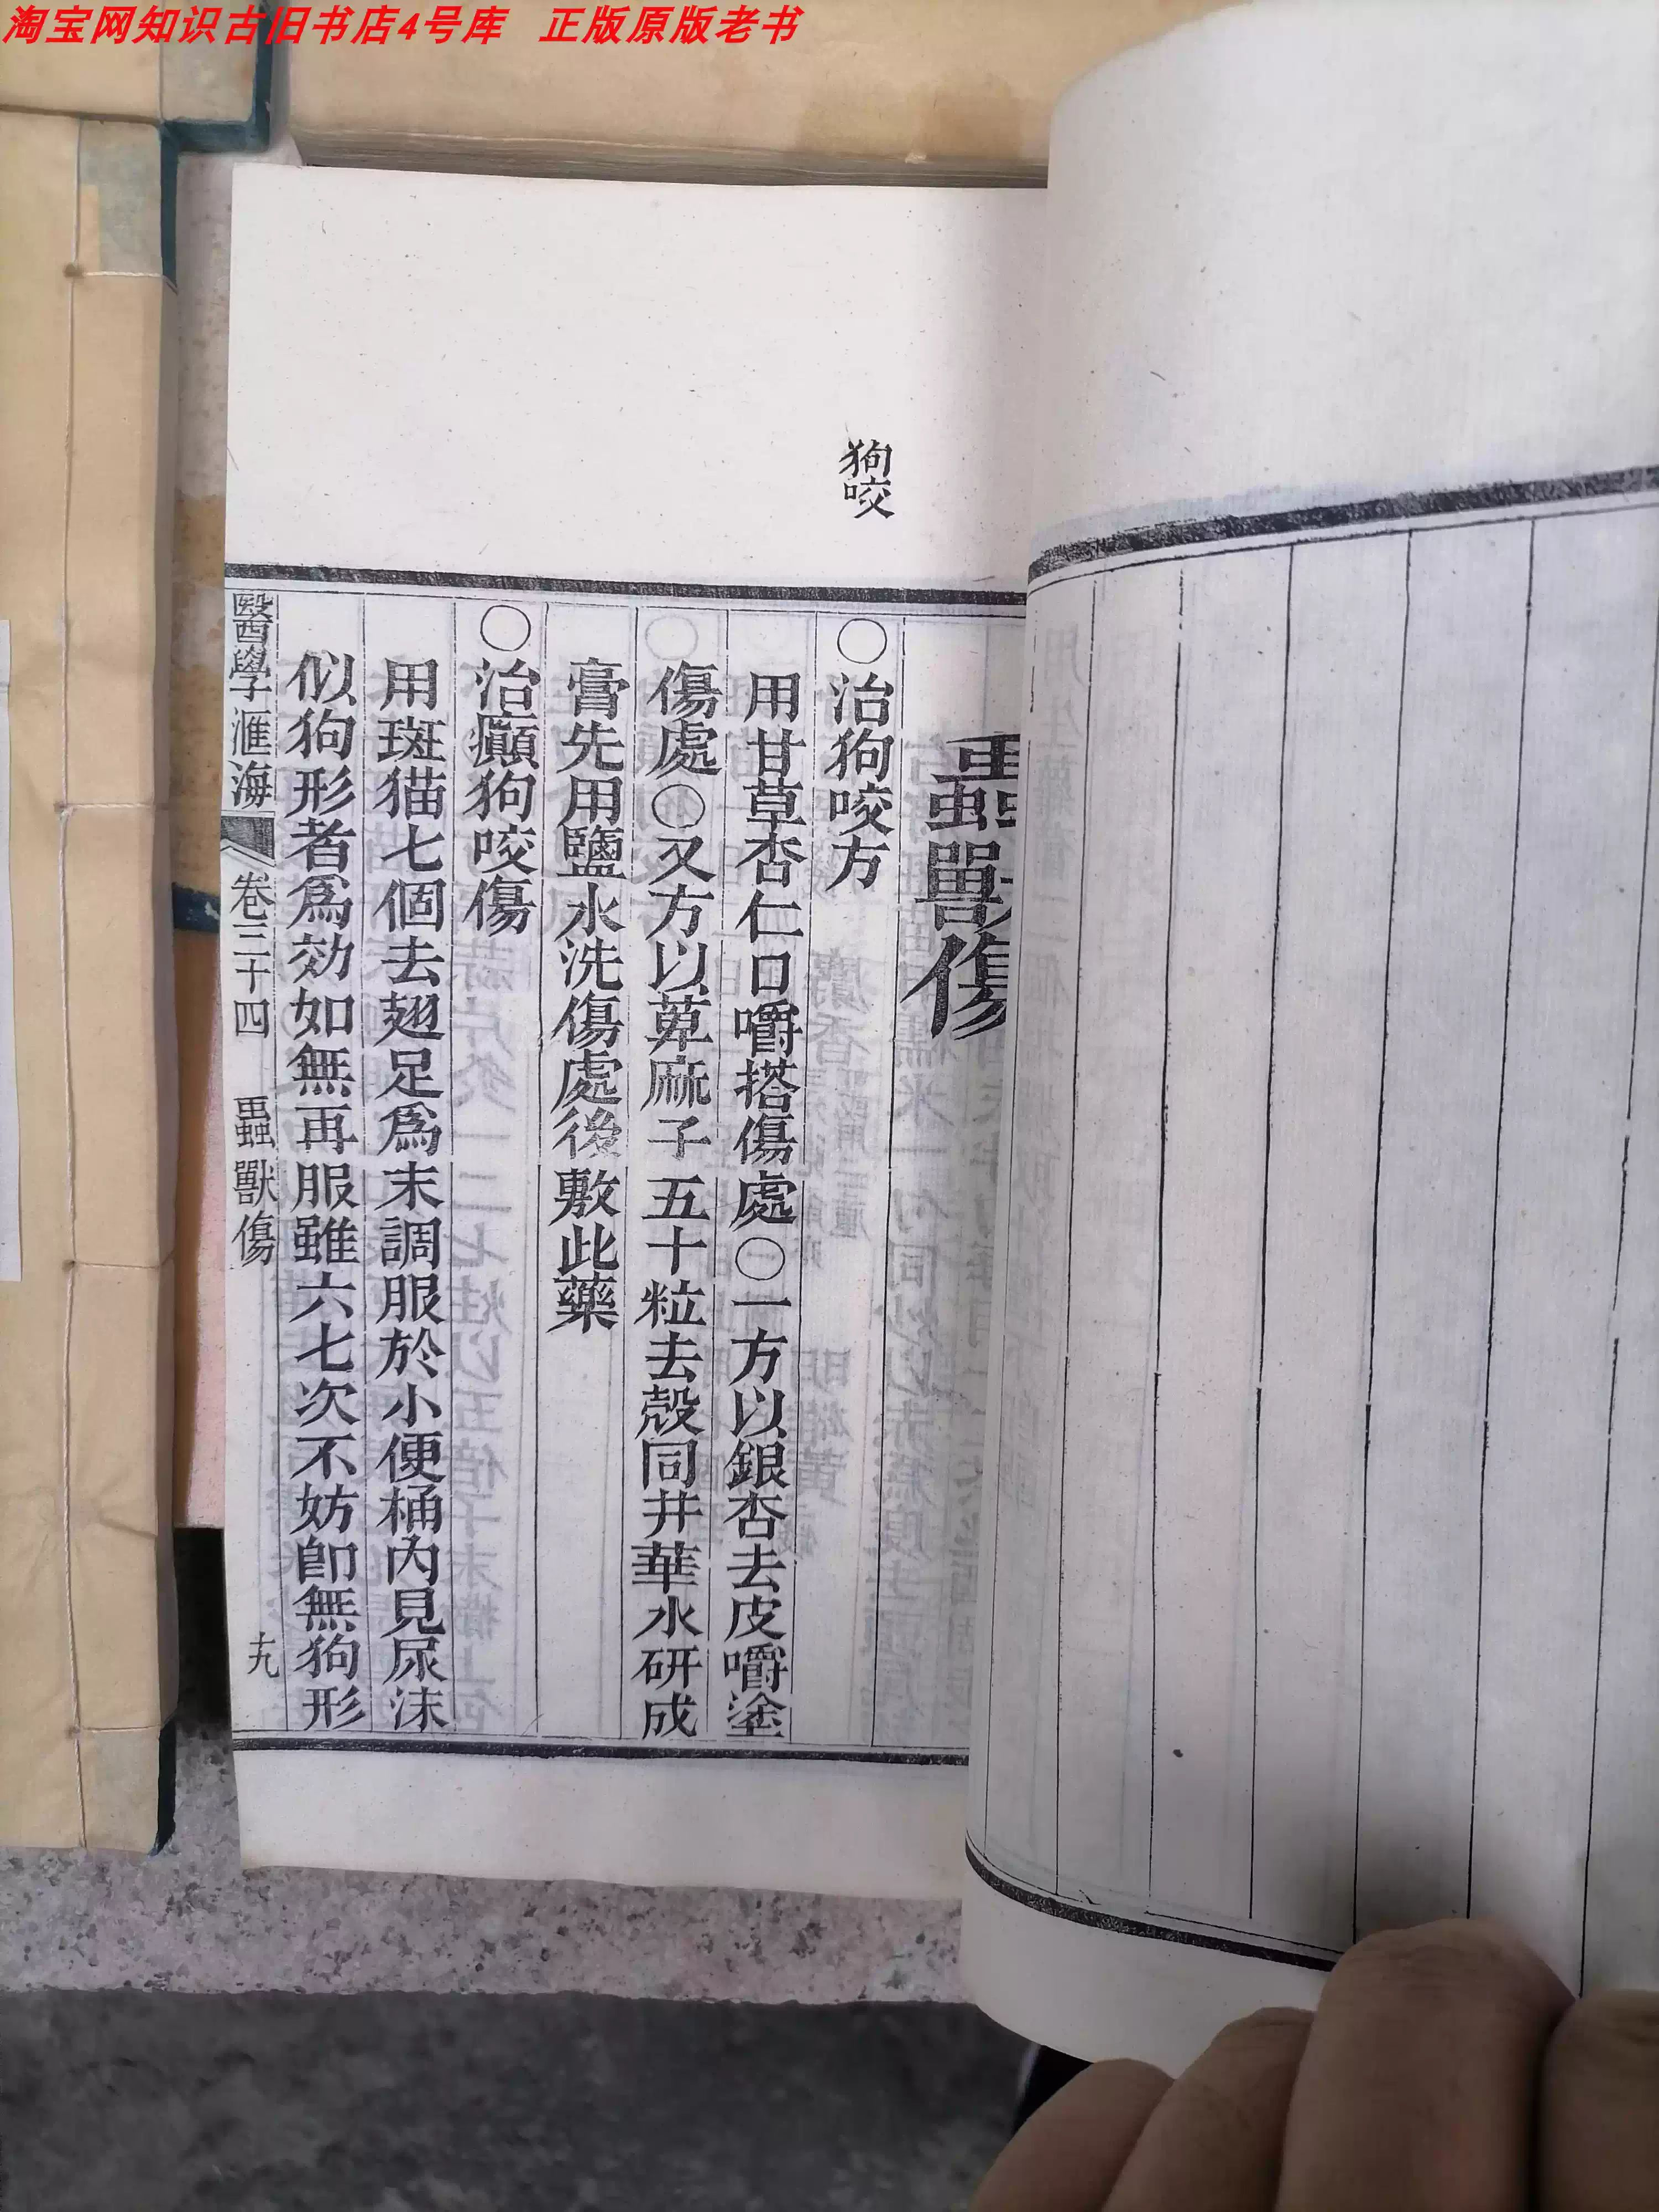 淘宝网知识古旧书店4号库 正版原版老书
狗咬
蟲獸傷
○治狗咬方
用甘草杏仁口嚼搭傷處○一方以銀杏去皮嚼塗
傷處○又方以萆麻子五十粒去殼同井華水研成
膏先用鹽水洗傷處後敷此藥
○治癲狗咬傷
用斑猫七個去翅足為末調服於小便桶內見尿沫
似狗形者為効如無再服雖六七次不妨即無狗形
醫學滙海 卷三十四 蟲獸傷 十九